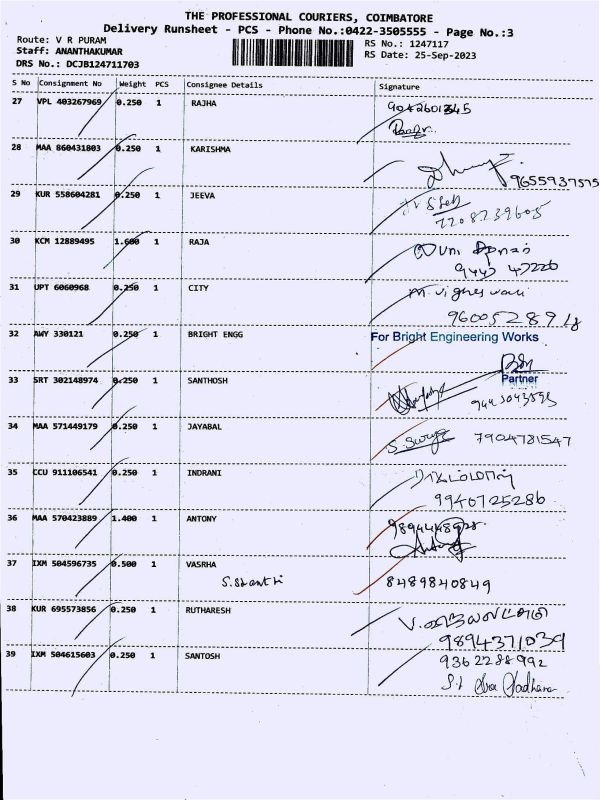 THE PROFESSIONAL COURIERS, COIMBATORE
Delivery Runsheet - PCS - Phone No.:0422-3505555 - Page No.:3
Route: V R PURAM
RS No.: 1247117
Staff: ANANTHAKUMAR
RS Date: 25-Sep-2023
DRS No.: DCJB124711703
S No Consignment No Weight PCS Consignee Details Signature
27 VPL 403267969 0.250 1 RAJHA
28 MAA 860431803 0.250 1 KARISHMA
9655937575
29 KUR 558604281 0.250 1 JEEVA
7708239605
30 KCM 12889495 1.600 1 RAJA
31 UPT 6060968 0.250 1 CITY
M. Vignes wari
32 AWY 330121 0.250 1 BRIGHT ENGG For Bright Engineering Works
Partner
33 SRT 302148974 0.250 1 SANTHOSH
34 MAA 571449179 0.250 1 JAYABAL S. Surya 7904781547
35 CCU 911106541 0.250 1 INDRANI
9940725286
36 MAA 570423889 1.400 1 ANTONY
37 IXM 504596735 0.500 1 VASRHA
8489840849
38 KUR 695573856 0.250 1 RUTHARESH
9894371039
39 IXM 504615603 0.250 1 SANTOSH 9362288992